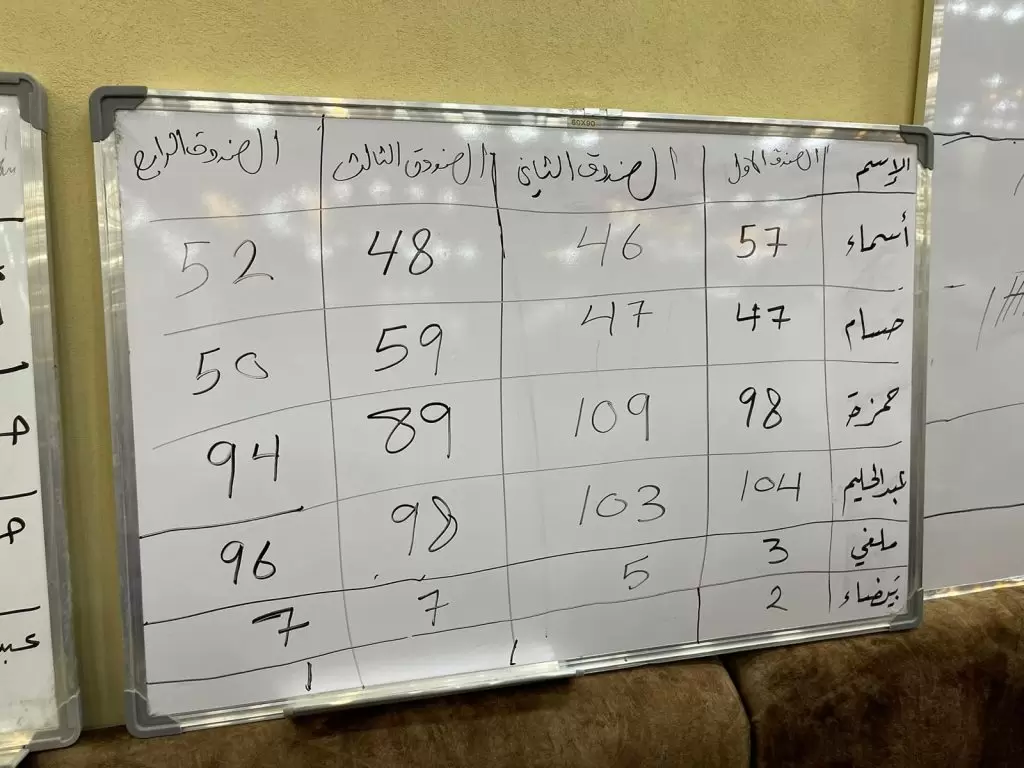 60X90
الإسم الصندوق الأول الصندوق الثاني الصندوق الثالث الصندوق الرابع
أسماء 57 46 48 52
حسام 47 47 59 50
حمزة 98 109 89 94
عبدالحليم 104 103 98 96
ملغي 3 5 7 7
بيضاء 2